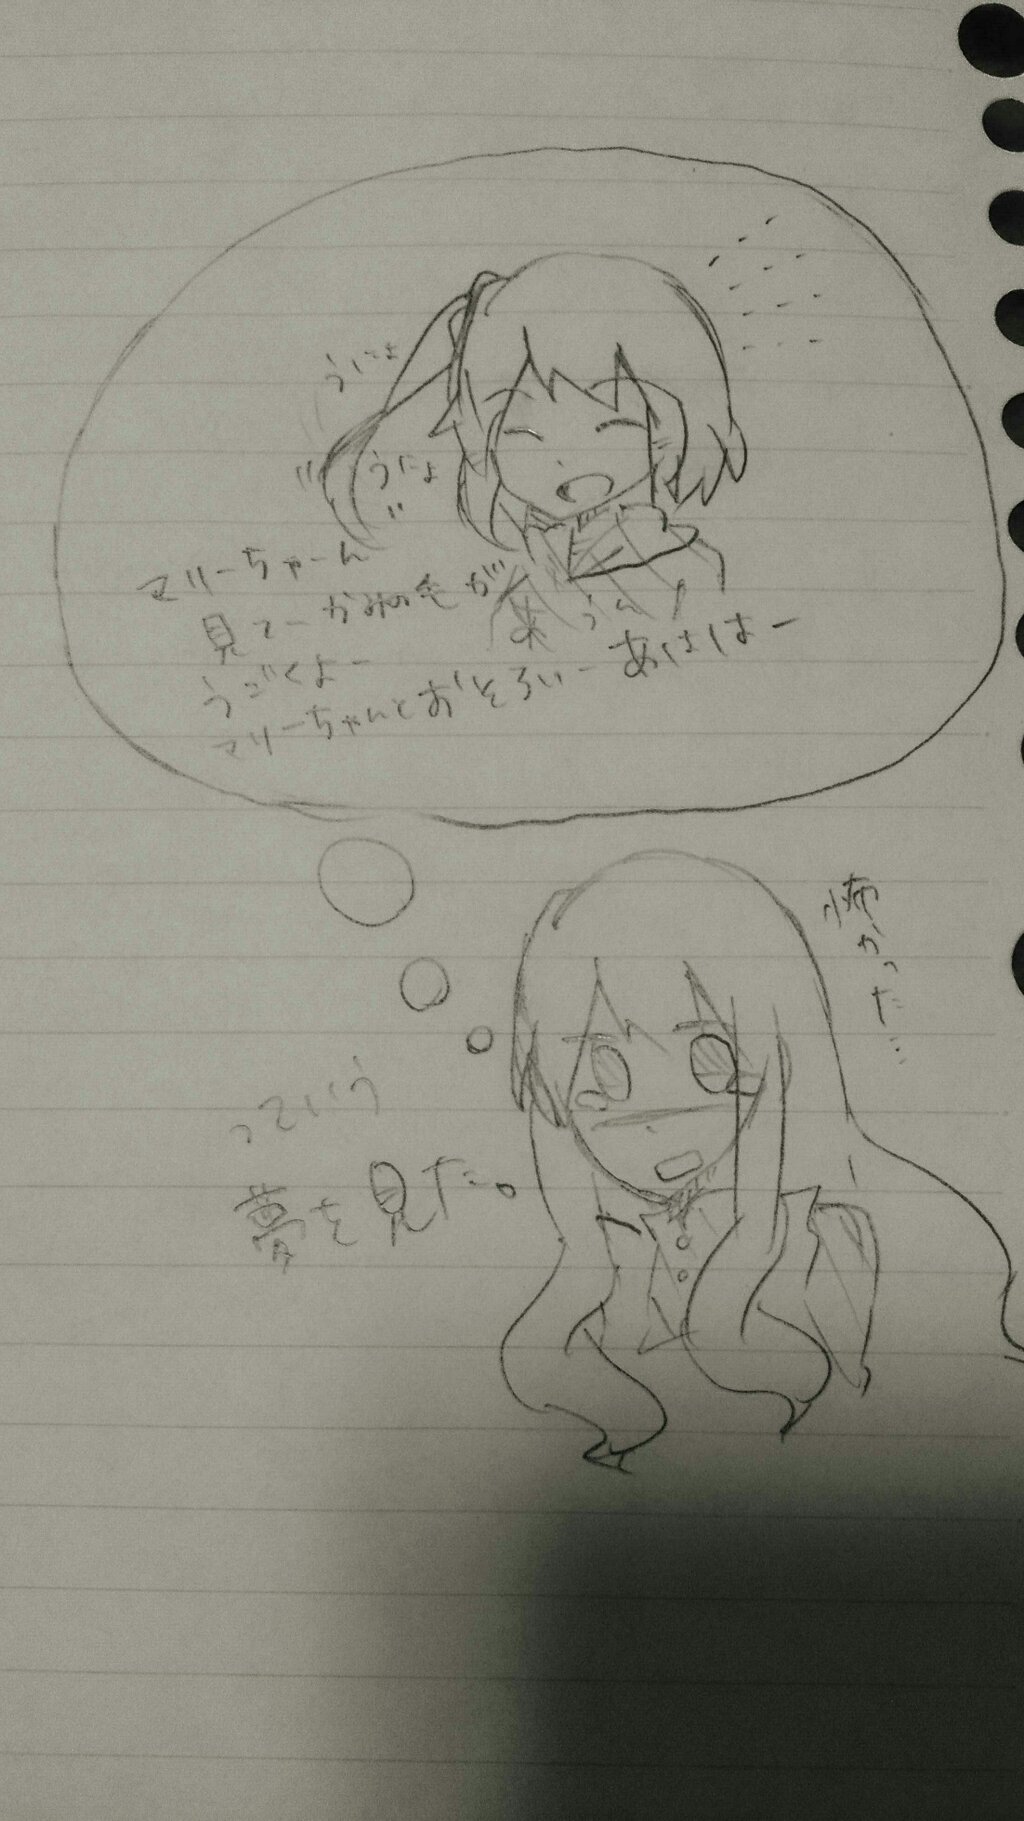 うにょ
うにょ
マリーちゃーん
見てーかみの毛が
うごくよー
マリーちゃんとおそろいーあははー
怖かった…
っていう
夢を見た。